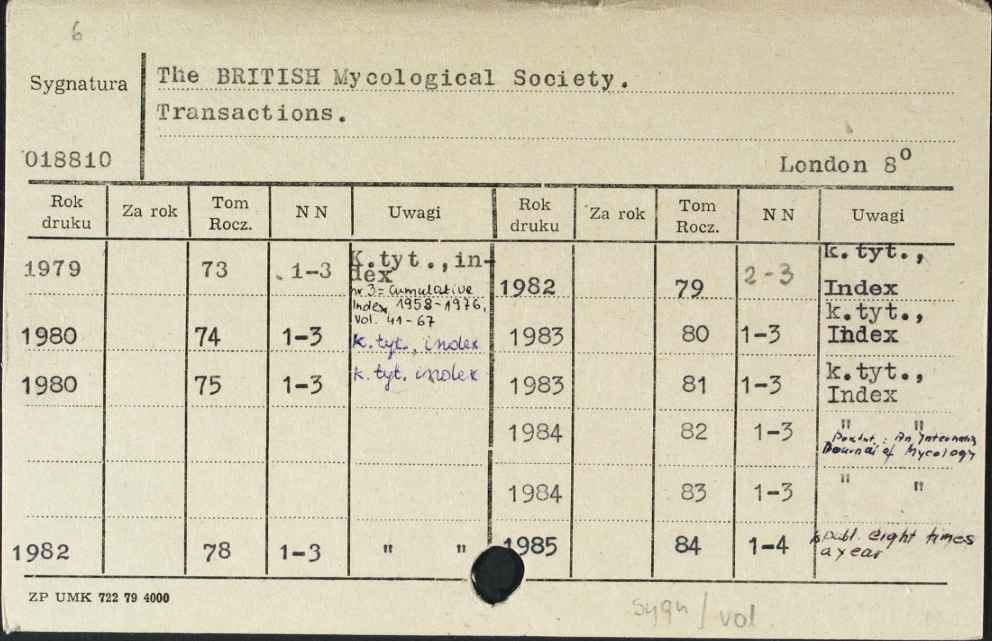 6
Sygnatura
The BRITISH Mycological Society.
Transactions.
018810
London 8⁰
Rok druku Za rok Tom Rocz. NN Uwagi Rok druku Za rok Tom Rocz. NN Uwagi
1979 73 1-3 K.tyt., in-
dex
nr 3 = Cumulative
Index 1958-1976,
Vol. 41-67
1980 74 1-3 k.tyt., index
1980 75 1-3 k.tyt. index
1982 78 1-3 " "
1982 79 2-3 k.tyt.,
Index
1983 80 1-3 k.tyt.,
Index
1983 81 1-3 k.tyt.,
Index
1984 82 1-3 " "
: An Internatn.
Journal of Mycology
1984 83 1-3 " "
1985 84 1-4 publ. eight times
a year
ZP UMK 722 79 4000
sygn / vol